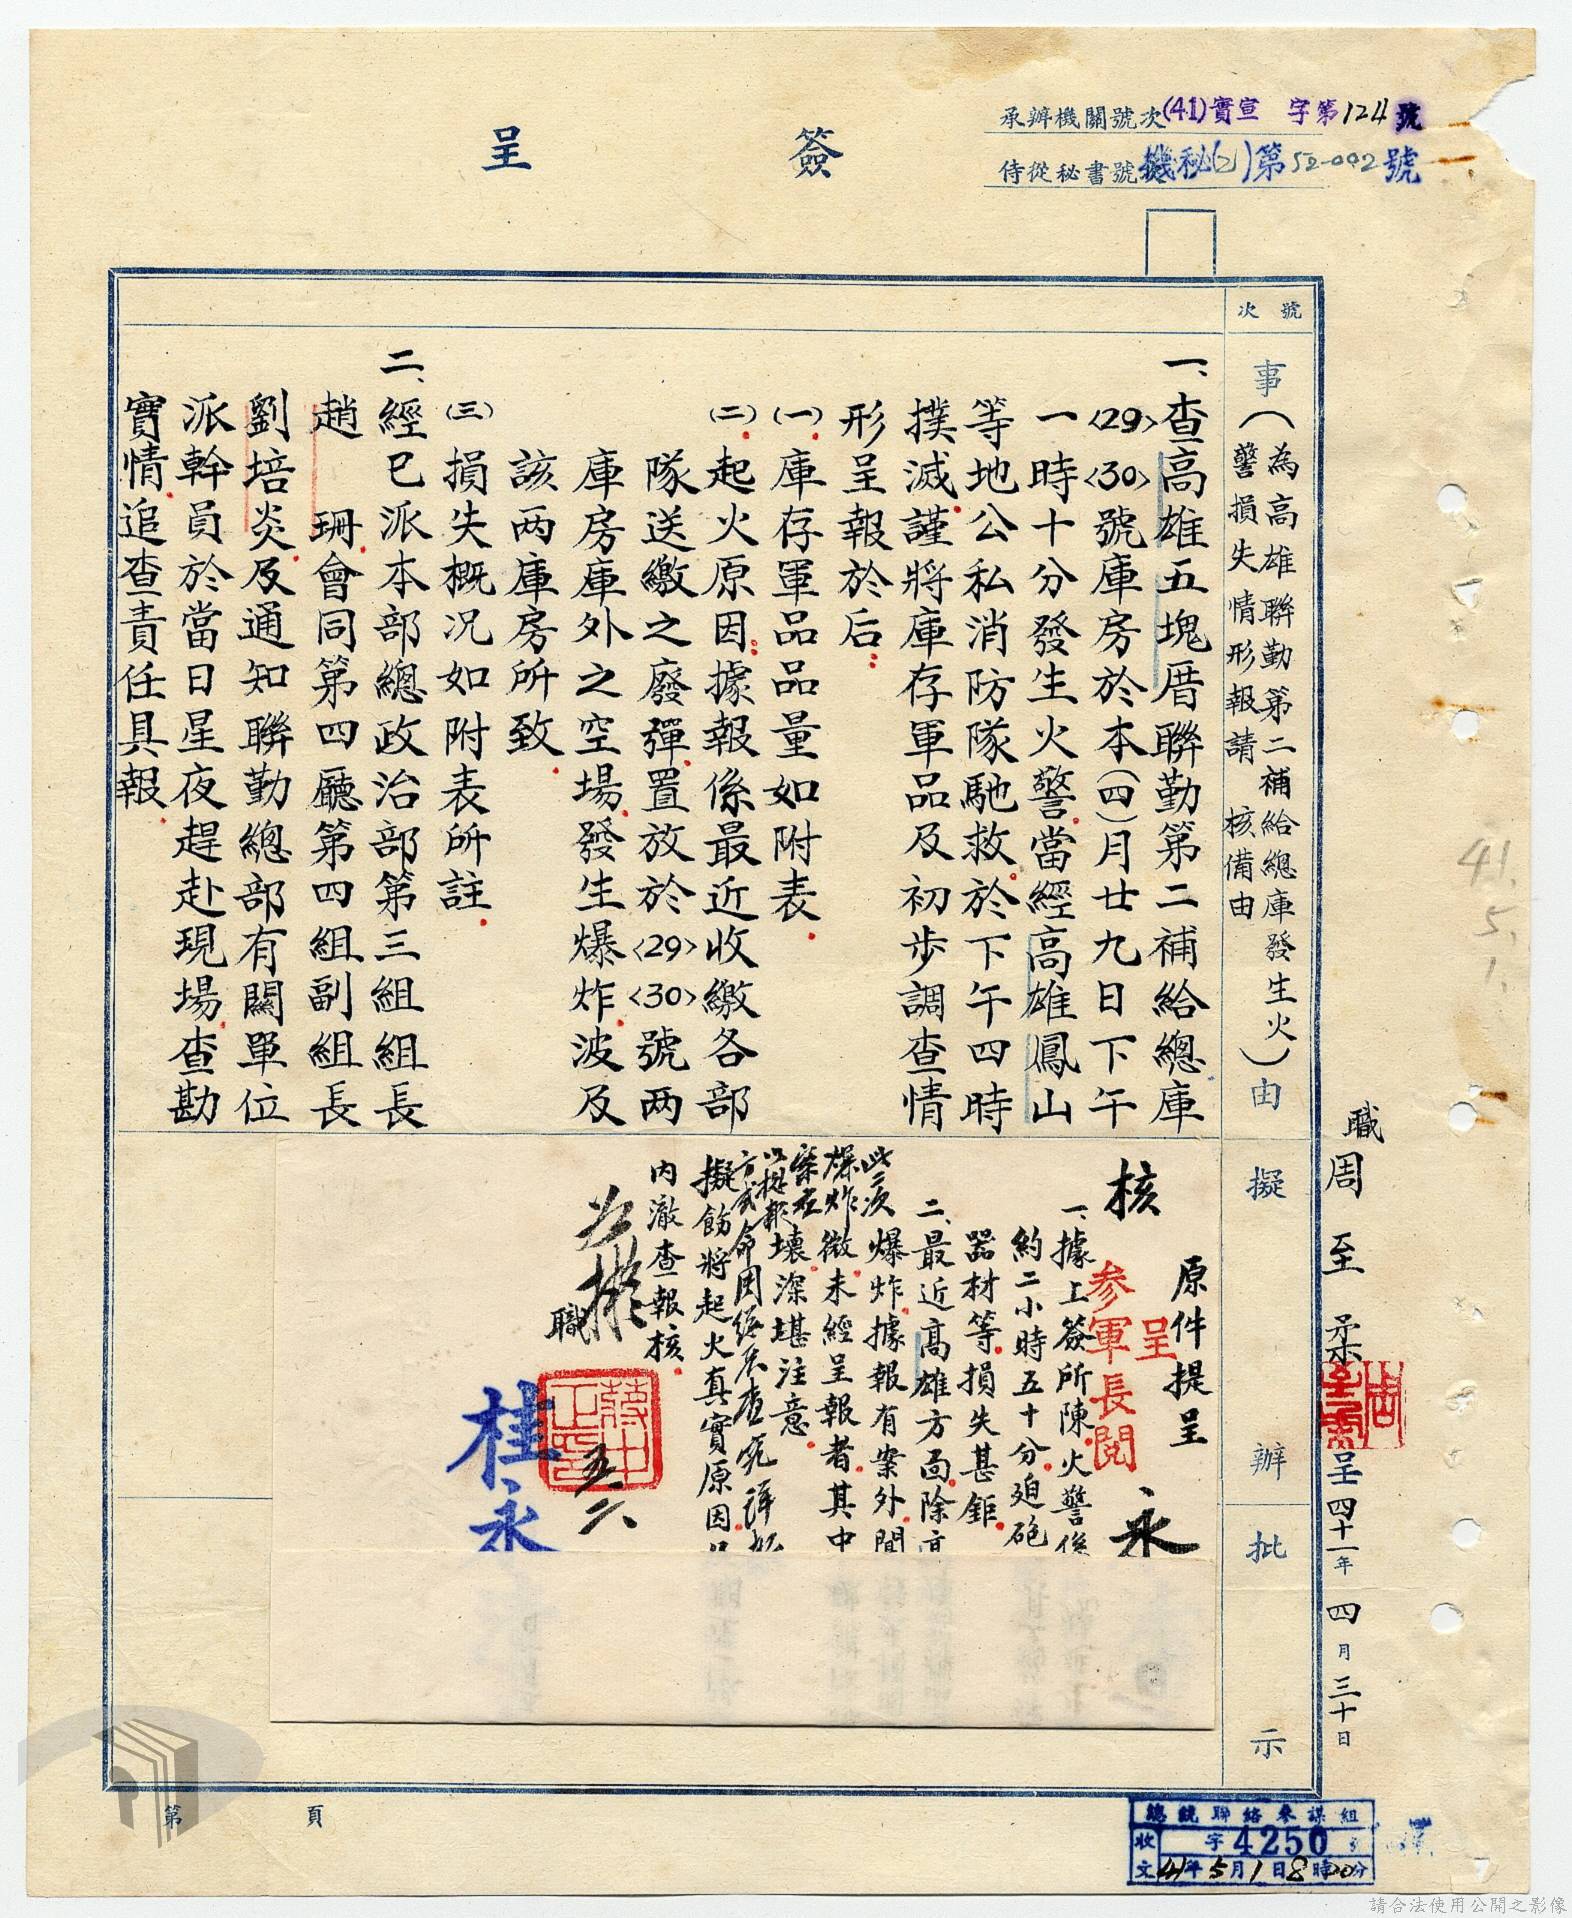 簽呈
承辦機關號次(41)實宣 字第124號
侍從秘書號次機秘(乙)第52-002號
號次
事由
(為高雄聯勤第二補給總庫發生火
警損失情形報請 核備由)
一、查高雄五塊厝聯勤第二補給總庫
<29><30>號庫房於本(四)月廿九日下午
一時十分發生火警當經高雄鳳山
等地公私消防隊馳救於下午四時
撲滅謹將庫存軍品及初步調查情
形呈報於后：
(一)庫存軍品品量如附表.
(二)起火原因：據報係最近收繳各部
隊送繳之廢彈置放於<29><30>號兩
庫房庫外之空場發生爆炸波及
該兩庫房所致.
(三)損失概況如附表所註.
二、經已派本部總政治部第三組組長
趙 珊會同第四廳第四組副組長
劉培炎及通知聯勤總部有關單位
派幹員於當日星夜趕赴現場查勘
實情追查責任具報.
擬辦
原件提呈
核
呈
參軍長閱
永
一、據上簽所陳火警係
約二小時五十分廹砲
器材等損失甚鉅
二、最近高雄方面除
此二次爆炸據報有案外間
爆炸徵未經呈報者其中
壞深堪注意
擬飭將起火真實原因
內澈查報核.
職
桂永
批示
職周至柔呈四十一年四月三十日
41.
5.
1.
第 頁
總統聯絡參謀組
收文 字4250號
41年5月1日8時00分
請合法使用公開之影像